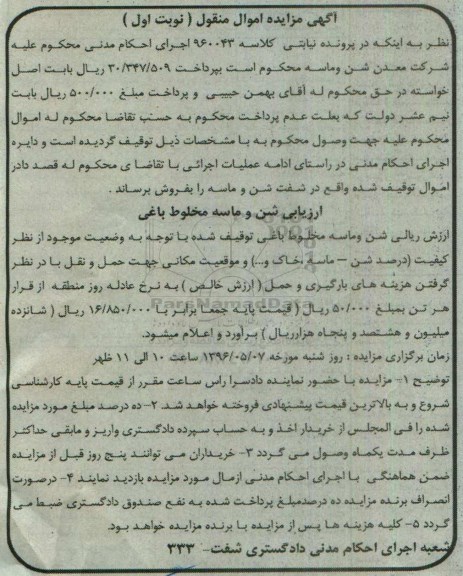 آگهی مزایده اموال منقول ( نوبت اول )
نظر به اینکه در پرونده نیابتی کلاسه ۹۶۰۰۴۳ اجرای احکام مدنی محکوم علیه
شرکت معدن شن وماسه محکوم است بپرداخت ۳۰/۳۴۷/۵۰۹ ریال بابت اصل
خواسته در حق محکوم له آقای بهمن حبیبی و پرداخت مبلغ ۵۰۰/۰۰۰ ریال بابت
نیم عشر دولت که بعلت عدم پرداخت محکوم به حسب تقاضا محکوم له اموال
محکوم علیه جهت وصول محکوم به با مشخصات ذیل توقیف گردیده است و دایره
اجرای احکام مدنی در راستای ادامه عملیات اجرائی با تقاضا ی محکوم له قصد دارد
اموال توقیف شده واقع در شفت شن و ماسه را بفروش برساند .
ارزیابی شن و ماسه مخلوط باغی
ارزش ریالی شن وماسه مخلوط باغی توقیف شده با توجه به وضعیت موجود از نظر
کیفیت (درصد شن – ماسه –خاک و...) و موقعیت مکانی جهت حمل و نقل با در نظر
گرفتن هزینه های بارگیری و حمل ( ارزش خالص ) به نرخ عادله روز منطقه از قرار
هر تن بمبلغ ۵۰/۰۰۰ ریال ( قیمت پایه جمعا برابر با ۱۶/۸۵۰/۰۰۰ ریال ( شانزده
میلیون و هشتصد و پنجاه هزارریال ) برآورد و اعلام میشود.
زمان برگزاری مزایده : روز شنبه مورخه ۱۳۹۶/۰۵/۰۷ ساعت ۱۰ الی ۱۱ ظهر
توضیح ۱- مزایده با حضور نماینده دادسرا راس ساعت مقرر از قیمت پایه کارشناسی
شروع و به بالاترین قیمت پیشنهادی فروخته خواهد شد. ۲-ده درصد مبلغ مورد مزایده
شده را فی المجلس از خریدار اخذ و به حساب سپرده دادگستری واریز و مابقی حداکثر
ظرف مدت یکماه وصول می گردد ۳- خریداران می توانند پنج روز قبل از مزایده
ضمن هماهنگی با اجرای احکام مدنی ازمال مورد مزایده بازدید نمایند ۴- درصورت
انصراف برنده مزایده ده درصدمبلغ پرداخت شده به نفع صندوق دادگستری ضبط می
گردد ۵- کلیه هزینه ها پس از مزایده با برنده مزایده خواهد بود.
شعبه اجرای احکام مدنی دادگستری شفت- ۳۳۳
ParsNamadData